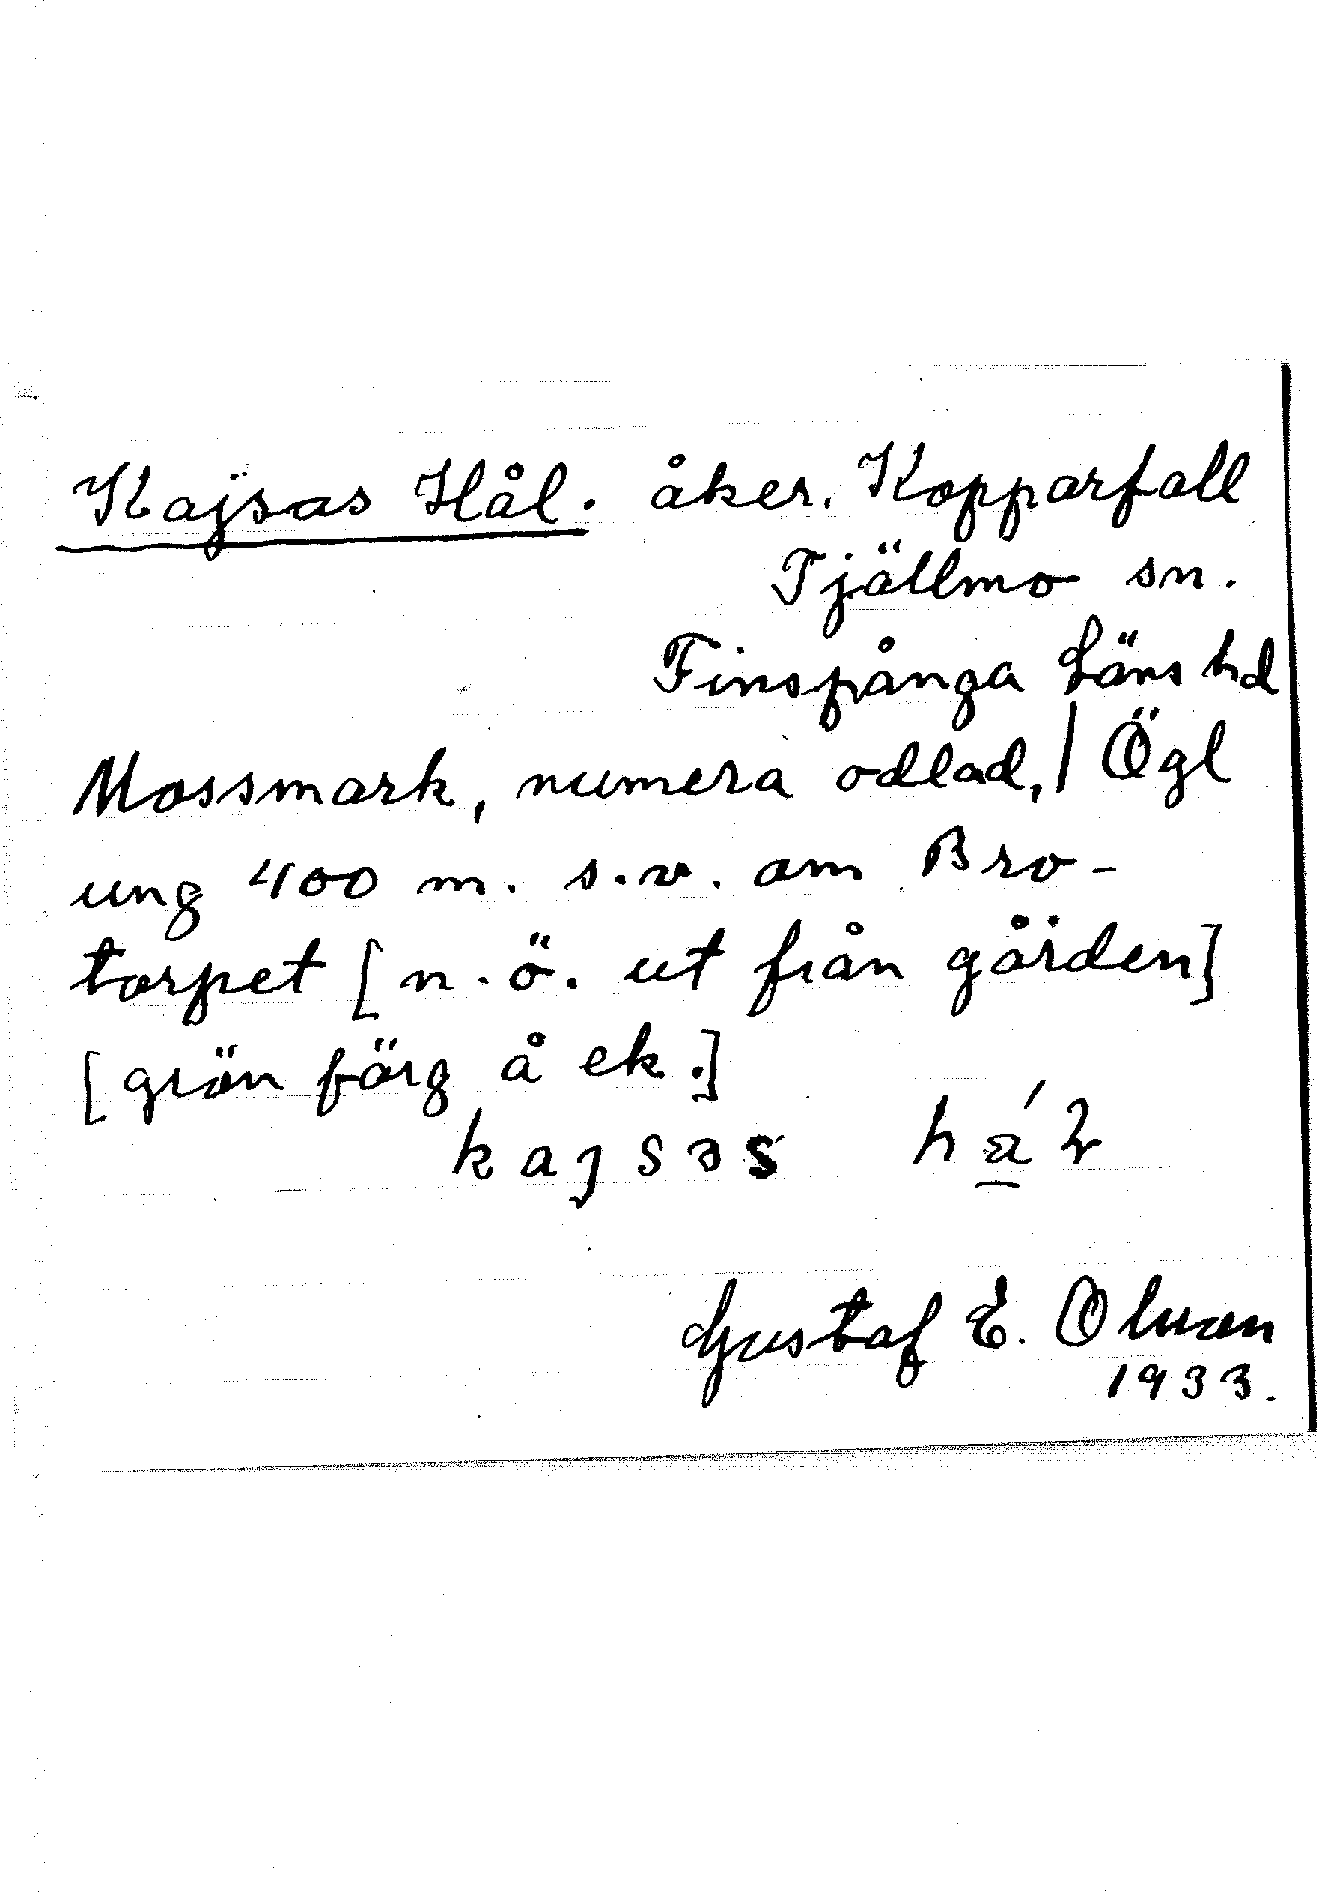 Kajsas Hål. åker. Kopparfall
Tjällmo sn.
Finspånga Läns hd
Mossmark, numera odlad, | Ögl
ung 400 m. s.v. om Bro-
torpet [n.ö. ut från gården]
[grön färg å ek.]
kajsəs
Gustaf E. Olson
1933.